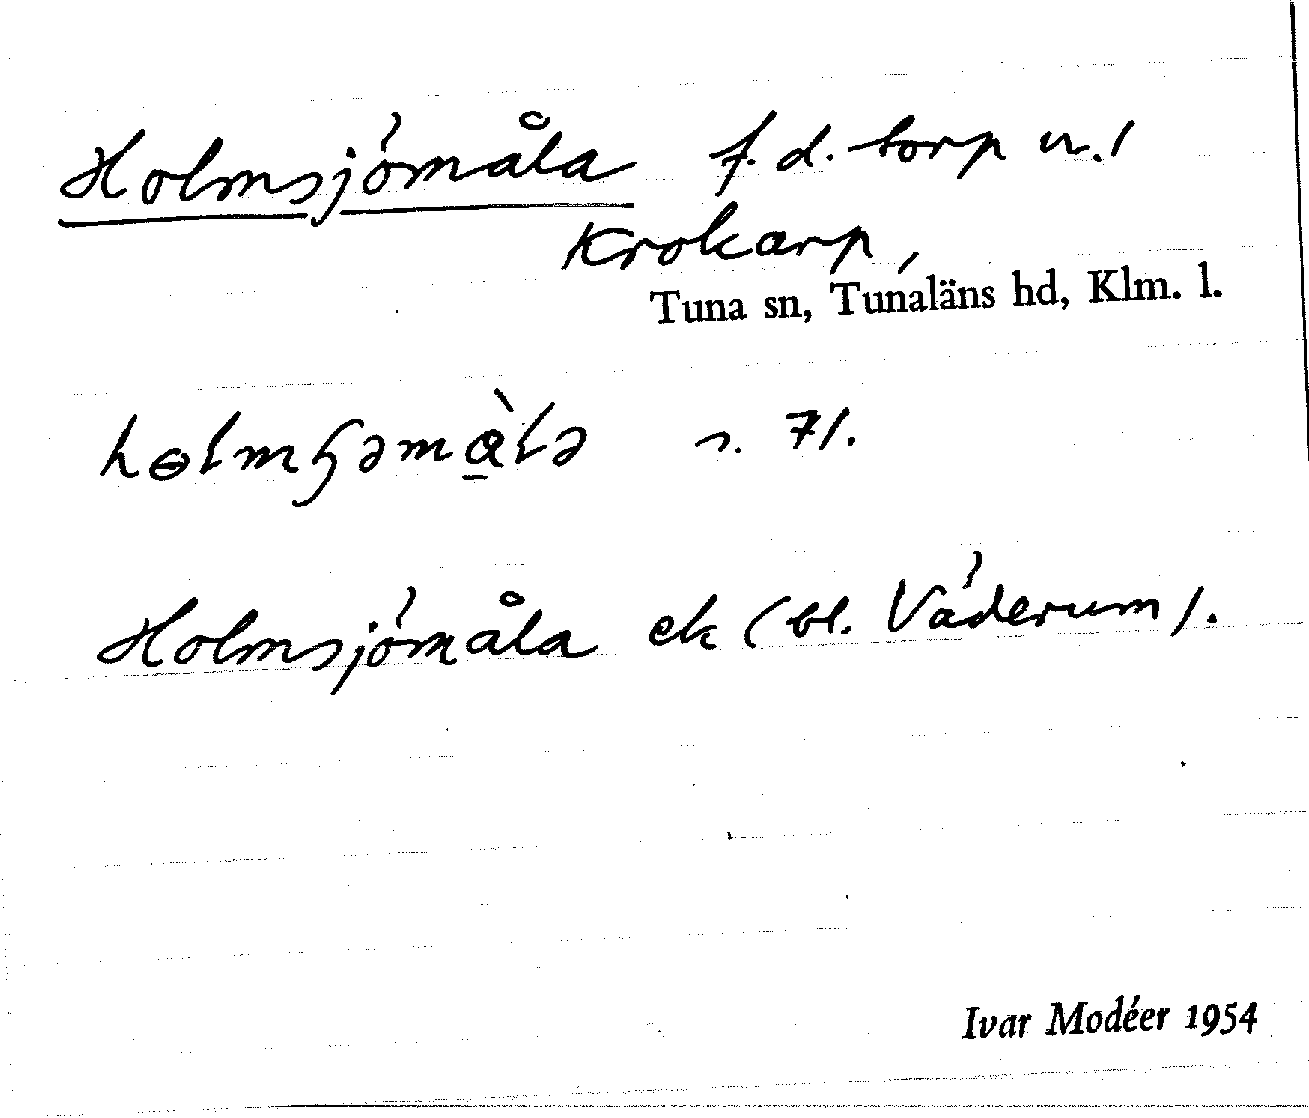 Holmsjömåla f.d. torp u./
Krokarp,
Tuna sn, Tunaläns hd, Klm. l.
s. 71.
Holmsjömåla ek (bl. Väderum).
Ivar Modéer 1954